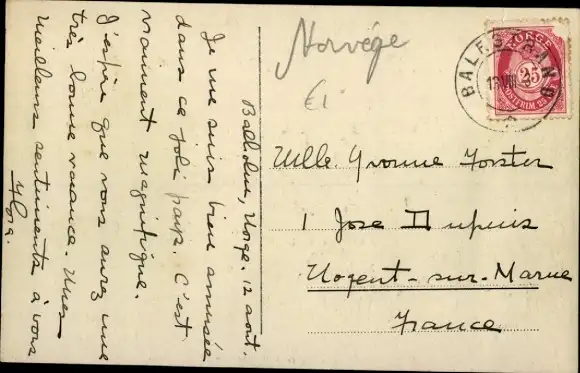 Norvége
€1
BALESTRAND
NORGE
25
POSTFRIM
Balholm, Norge. 12 aout.
Je me suis bien amusée
dans ce joli pays. C'est
vraiment magnifique.
J'espère que vous aurez une
très bonne vacance. Mes
meilleurs sentiments à vous
Mlle. Yvonne Forster
1 Jose Dupuis
Nogent-sur-Marne
France